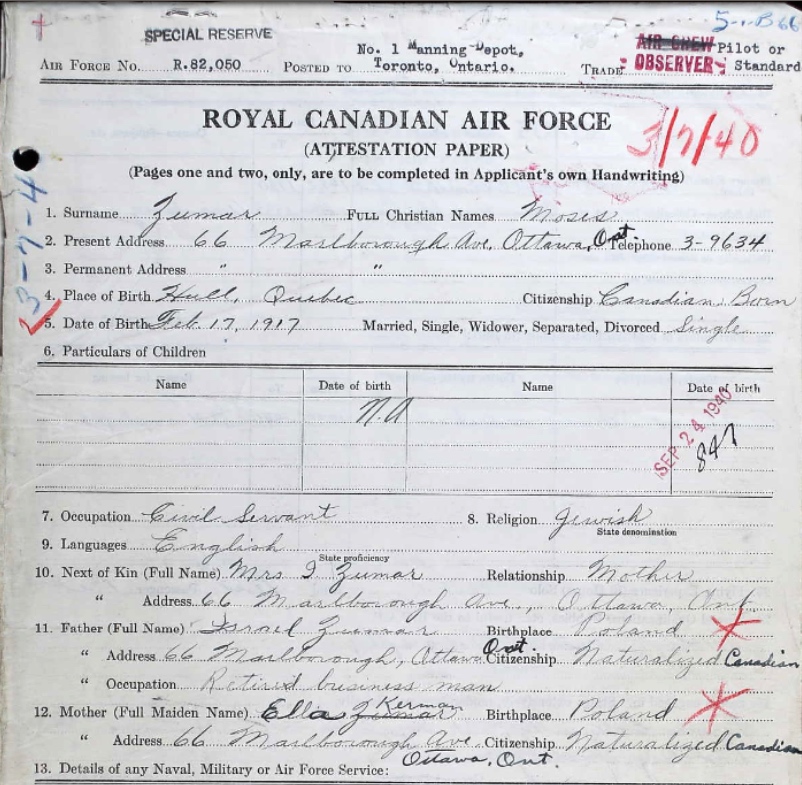 5-B66
SPECIAL RESERVE
AIR FORCE No. R.82,050 POSTED TO No. 1 Manning Depot, Toronto, Ontario. TRADE: AIR CREW OBSERVER Pilot or Standard
ROYAL CANADIAN AIR FORCE
3/7/40
(ATTESTATION PAPER)
(Pages one and two, only, are to be completed in Applicant's own Handwriting)
3-7-4
1. Surname Zumar FULL Christian Names Moses
2. Present Address 66 Marlborough Ave, Ottawa, Ont. Telephone 3-9634
3. Permanent Address " "
4. Place of Birth Hull, Quebec Citizenship Canadian Born
5. Date of Birth Feb. 17, 1917 Married, Single, Widower, Separated, Divorced Single
6. Particulars of Children
Name Date of birth Name Date of birth
N.A
SEP 24 1940
847
7. Occupation Civil Servant 8. Religion Jewish
State denomination
9. Languages English
State proficiency
10. Next of Kin (Full Name) Mrs I Zumar Relationship Mother
" Address 66 Marlborough Ave., Ottawa, Ont
11. Father (Full Name) Israel Zumar Birthplace Poland
" Address 66 Marlborough, Ottawa Ont. Citizenship Naturalized Canadian
" Occupation Retired business man
12. Mother (Full Maiden Name) Ella Zumar Kerman Birthplace Poland
" Address 66 Marlborough Ave Citizenship Naturalized Canadian
Ottawa, Ont.
13. Details of any Naval, Military or Air Force Service: